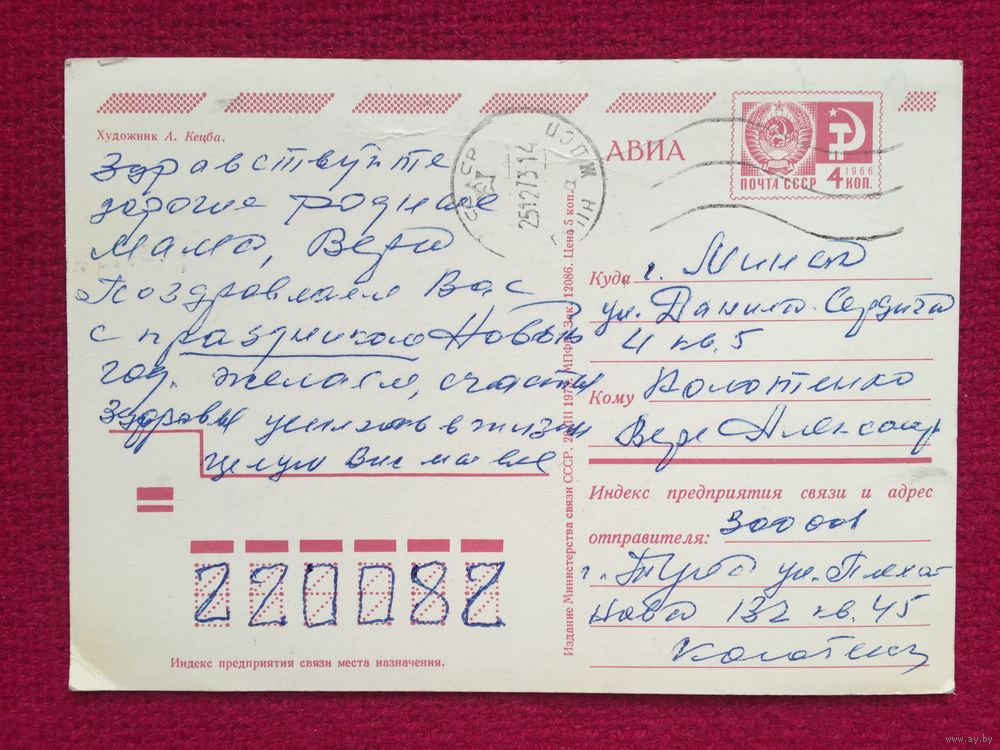 Художник А. Кецба.
Здравствуйте
дорогие родные
Мама, Вера
Поздравляем Вас
с праздником Новый
год. желаем, счастья
Здоровья успехов в жизни
Целую Вас
АВИА
1966
ПОЧТА СССР 4 КОП.
25127314
Куда г. Минск
ул. Данила Сердича
4 кв. 5
Кому Колотенко
Вере Александр
Индекс предприятия связи и адрес
отправителя: 300001
г. Тула ул. Плеха-
нова 132 кв. 45
Колотенко
Издание Министерства связи СССР. МПФГ. Зак. 12086. Цена 5 коп.
220082
Индекс предприятия связи места назначения.
www.ay.by